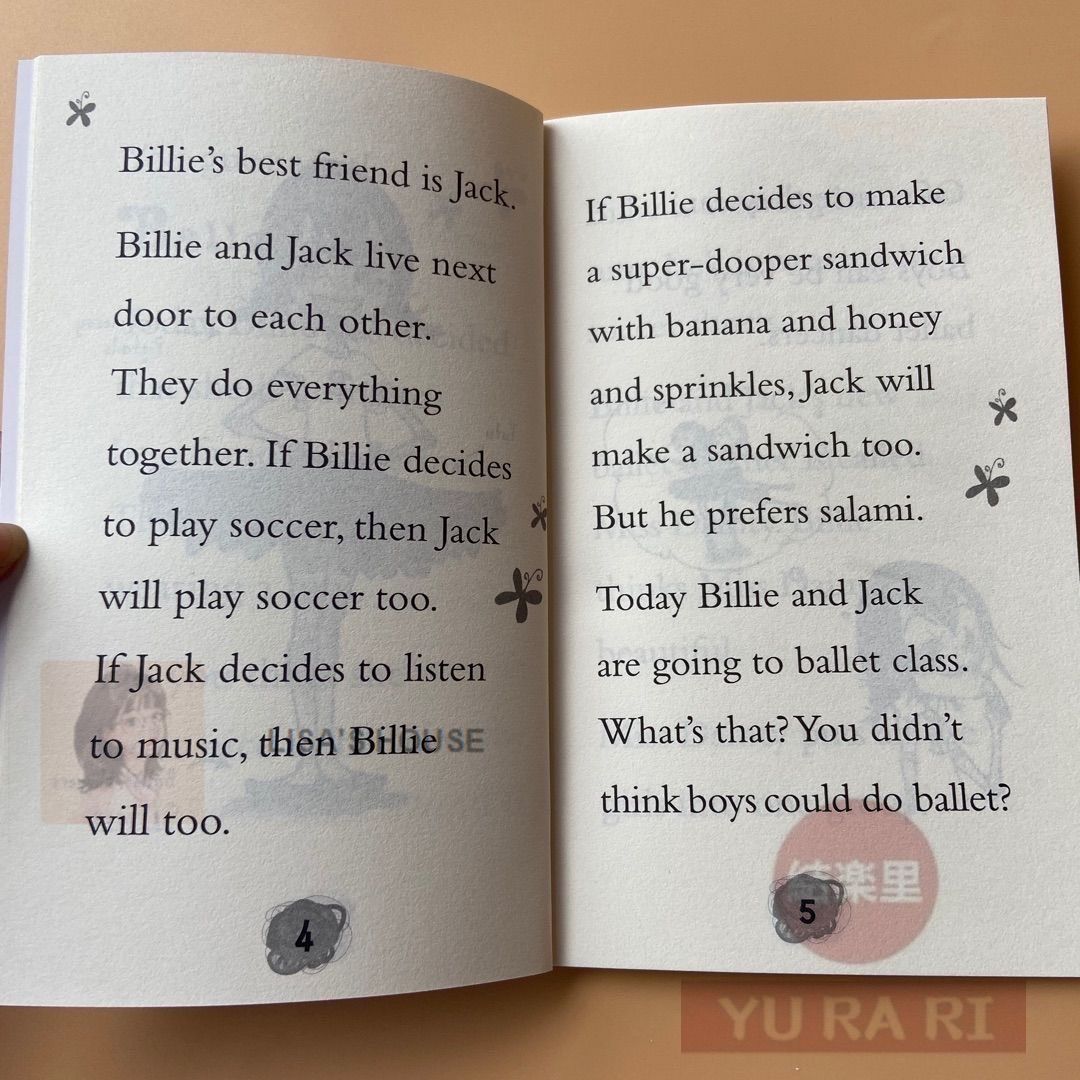 Billie's best friend is Jack.
Billie and Jack live next
door to each other.
They do everything
together. If Billie decides
to play soccer, then Jack
will play soccer too.
If Jack decides to listen
to music, then Billie
will too.
LISA'S HOUSE
4
If Billie decides to make
a super-dooper sandwich
with banana and honey
and sprinkles, Jack will
make a sandwich too.
But he prefers salami.
Today Billie and Jack
are going to ballet class.
What's that? You didn't
think boys could do ballet?
楽里
5
YU RA RI